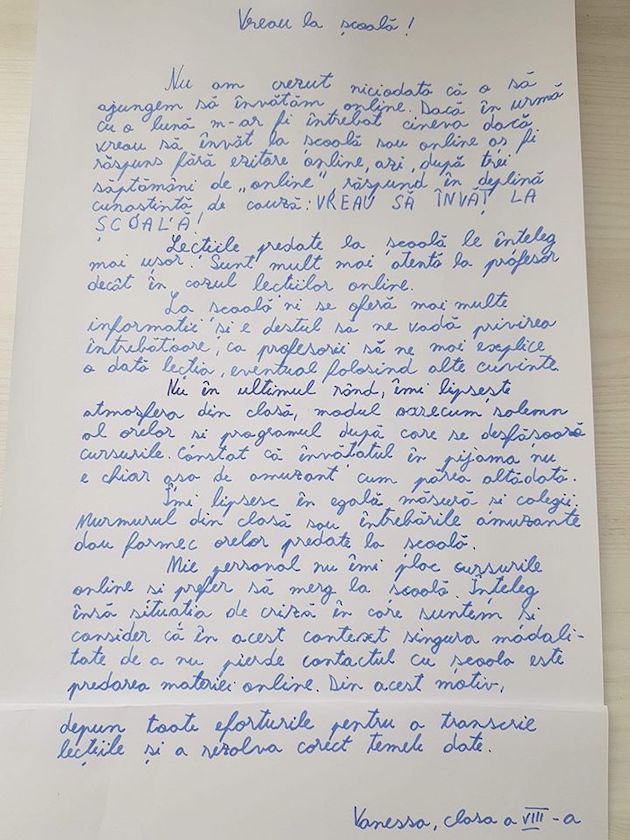 Vreau la școală!
Nu am crezut niciodată că o să
ajungem să învătăm online. Dacă în urmă
cu o lună m-ar fi întrebat cineva dacă
vreau să învăt la scoală sau online as fi
răspuns fără ezitare online, azi, după trei
săptămâni de „online”, răspund în deplină
cunostintă de cauză: VREAU SĂ ÎNVĂȚ LA
ȘCOALĂ!
Lecțiile predate la școală le înteleg
mai usor. Sunt mult mai atentă la profesor
decât în cazul lectiilor online.
La scoală ni se oferă mai multe
informatii si e destul să ne vadă privirea
întrebătoare, ca profesorii să ne mai explice
o dată lectia, eventual folosind alte cuvinte.
Nu în ultimul rând, îmi lipseste
atmosfera din clasă, modul oarecum solemn
al orelor si programul după care se desfăsoară
cursurile. Constat că învătatul în pijama nu
e chiar asa de amuzant cum părea altădată.
Îmi lipsesc în egală măsură si colegii.
Murmurul din clasă sau întrebările amuzante
dau farmec orelor predate la scoală.
Mie personal nu îmi plac cursurile
online si prefer să merg la scoală. Înțeleg
însă situatia de criză în care suntem si
consider că în acest context singura modali-
tate de a nu pierde contactul cu școala este
predarea materiei online. Din acest motiv,
depun toate eforturile pentru a transcrie
lecțiile și a rezolva corect temele date.
Vanessa, clasa a VIII-a